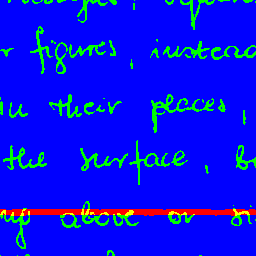 r figures, instead
in their places,
the surface, b
ng above or si